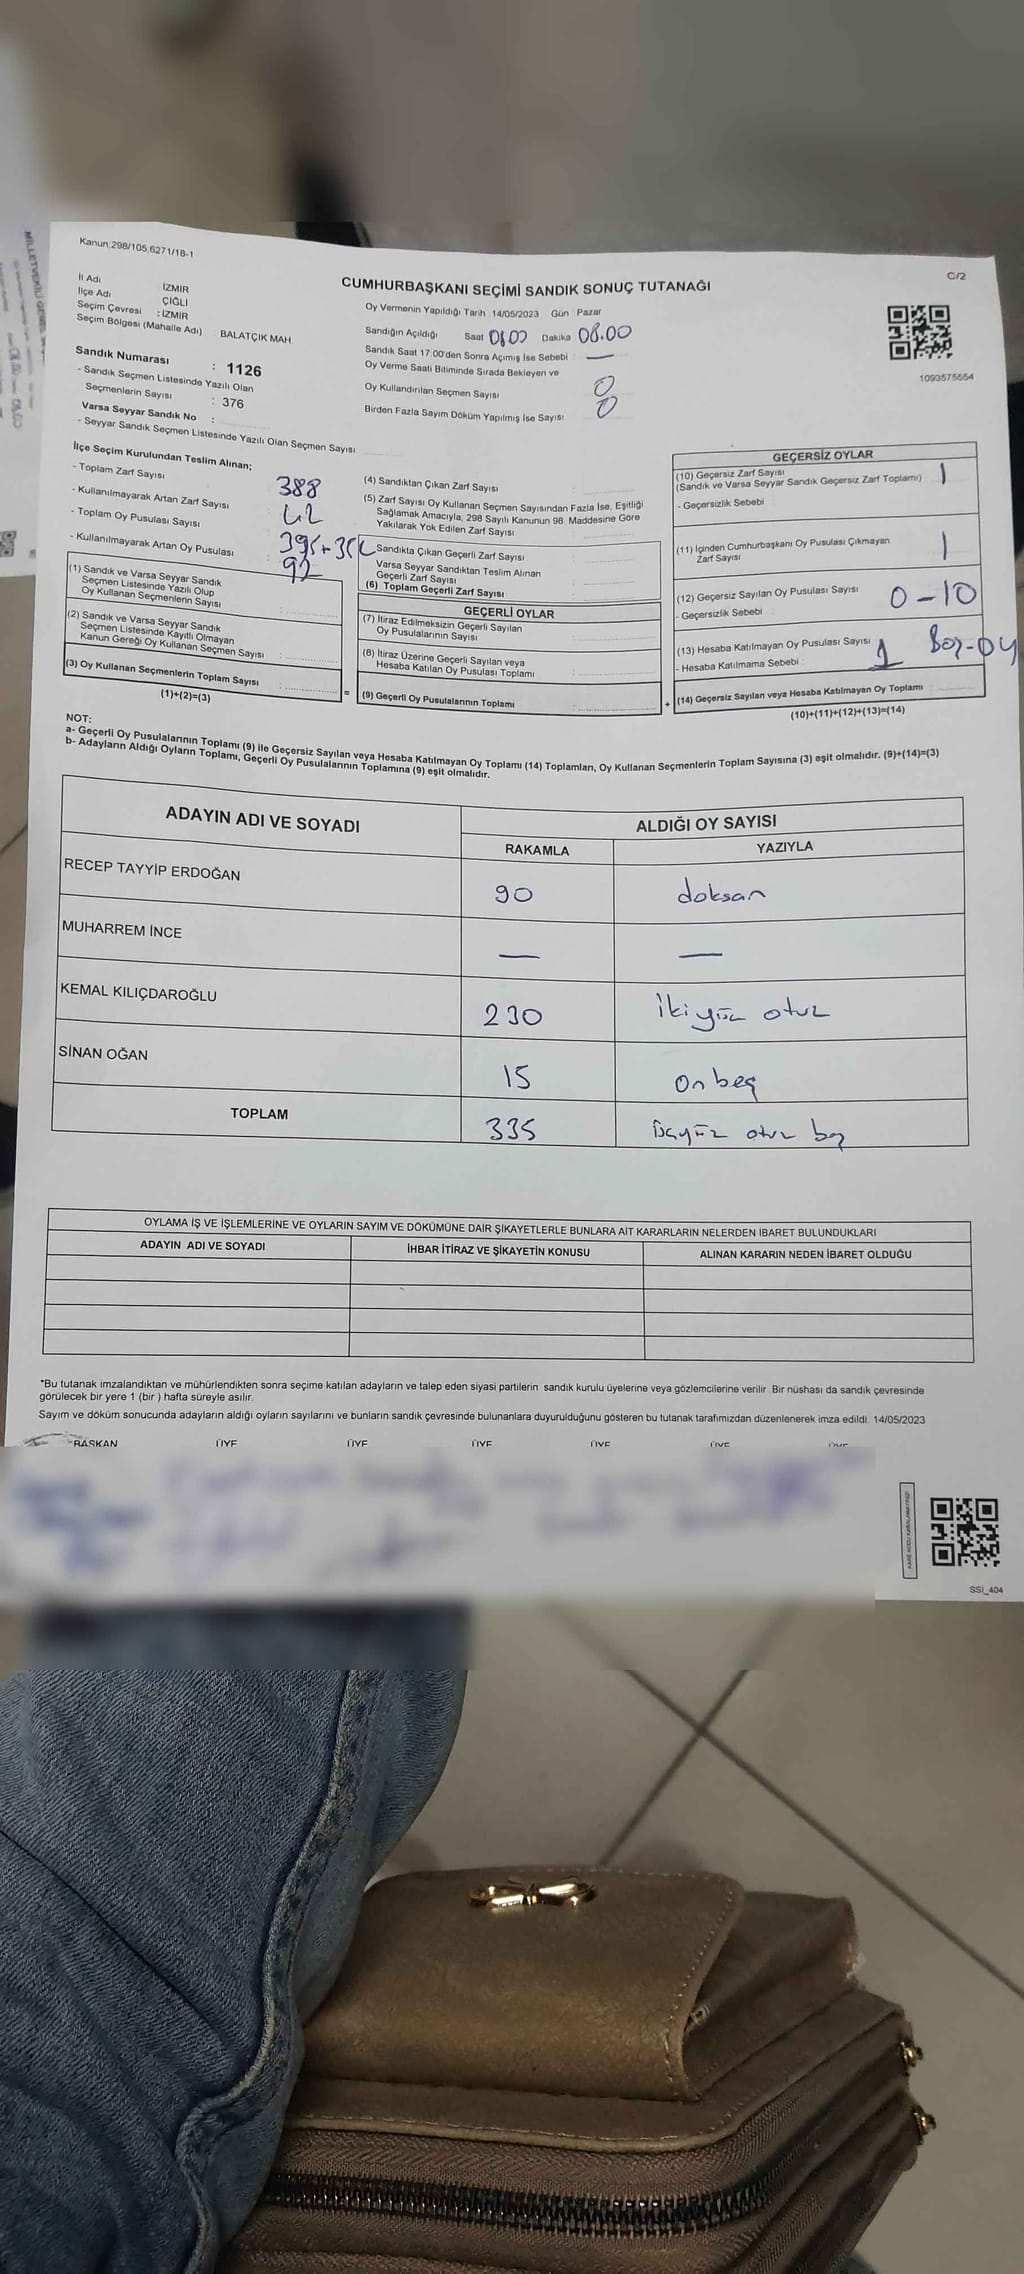 Kanun:298/105,6271/18-1
C/2
CUMHURBAŞKANI SEÇİMİ SANDIK SONUÇ TUTANAĞI
İl Adı İZMİR
İlçe Adı ÇİĞLİ
Seçim Çevresi : İZMİR
Seçim Bölgesi (Mahalle Adı) : BALATÇIK MAH.
Sandık Numarası : 1126
- Sandık Seçmen Listesinde Yazılı Olan
Seçmenlerin Sayısı : 376
Varsa Seyyar Sandık No :
- Seyyar Sandık Seçmen Listesinde Yazılı Olan Seçmen Sayısı
Oy Vermenin Yapıldığı Tarih : 14/05/2023 Gün Pazar
Sandığın Açıldığı Saat 08.00 Dakika 08.00
Sandık Saat 17:00'den Sonra Açımış İse Sebebi : —
Oy Verme Saati Bitiminde Sırada Bekleyen ve
Oy Kullandırılan Seçmen Sayısı 0
Birden Fazla Sayım Döküm Yapılmış İse Sayısı 0
1093575554
İlçe Seçim Kurulundan Teslim Alınan;
- Toplam Zarf Sayısı 388
- Kullanılmayarak Artan Zarf Sayısı 42
- Toplam Oy Pusulası Sayısı
- Kullanılmayarak Artan Oy Pusulası 92
(1) Sandık ve Varsa Seyyar Sandık
Seçmen Listesinde Yazılı Olup
Oy Kullanan Seçmenlerin Sayısı :
(2) Sandık ve Varsa Seyyar Sandık
Seçmen Listesinde Kayıtlı Olmayan
Kanun Gereği Oy Kullanan Seçmen Sayısı :
(3) Oy Kullanan Seçmenlerin Toplam Sayısı :
(1)+(2)=(3)
=
(4) Sandıktan Çıkan Zarf Sayısı :
(5) Zarf Sayısı Oy Kullanan Seçmen Sayısından Fazla İse, Eşitliği
Sağlamak Amacıyla, 298 Sayılı Kanunun 98. Maddesine Göre
Yakılarak Yok Edilen Zarf Sayısı :
Sandıkta Çıkan Geçerli Zarf Sayısı :
Varsa Seyyar Sandıktan Teslim Alınan
Geçerli Zarf Sayısı :
(6) Toplam Geçerli Zarf Sayısı :
GEÇERLİ OYLAR
(7) İtiraz Edilmeksizin Geçerli Sayılan
Oy Pusulalarının Sayısı :
(8) İtiraz Üzerine Geçerli Sayılan veya
Hesaba Katılan Oy Pusulası Toplamı :
(9) Geçerli Oy Pusulalarının Toplamı :
+
GEÇERSİZ OYLAR
(10) Geçersiz Zarf Sayısı
(Sandık ve Varsa Seyyar Sandık Geçersiz Zarf Toplamı) : 1
- Geçersizlik Sebebi :
(11) İçinden Cumhurbaşkanı Oy Pusulası Çıkmayan
Zarf Sayısı : 1
(12) Geçersiz Sayılan Oy Pusulası Sayısı : 0-10
- Geçersizlik Sebebi :
(13) Hesaba Katılmayan Oy Pusulası Sayısı : 1 Boş-oy
- Hesaba Katılmama Sebebi :
(14) Geçersiz Sayılan veya Hesaba Katılmayan Oy Toplamı :
(10)+(11)+(12)+(13)=(14)
NOT:
a- Geçerli Oy Pusulalarının Toplamı (9) ile Geçersiz Sayılan veya Hesaba Katılmayan Oy Toplamı (14) Toplamları, Oy Kullanan Seçmenlerin Toplam Sayısına (3) eşit olmalıdır. (9)+(14)=(3)
b- Adayların Aldığı Oyların Toplamı, Geçerli Oy Pusulalarının Toplamına (9) eşit olmalıdır.
ADAYIN ADI VE SOYADI
ALDIĞI OY SAYISI
RAKAMLA YAZIYLA
RECEP TAYYİP ERDOĞAN 90 doksan
MUHARREM İNCE — —
KEMAL KILIÇDAROĞLU 230 ikiyüz otuz
SİNAN OĞAN 15 on beş
TOPLAM 335 üçyüz otuz beş
OYLAMA İŞ VE İŞLEMLERİNE VE OYLARIN SAYIM VE DÖKÜMÜNE DAİR ŞİKAYETLERLE BUNLARA AİT KARARLARIN NELERDEN İBARET BULUNDUKLARI
ADAYIN ADI VE SOYADI İHBAR İTİRAZ VE ŞİKAYETİN KONUSU ALINAN KARARIN NEDEN İBARET OLDUĞU
*Bu tutanak imzalandıktan ve mühürlendikten sonra seçime katılan adayların ve talep eden siyasi partilerin sandık kurulu üyelerine veya gözlemcilerine verilir. Bir nüshası da sandık çevresinde
görülecek bir yere 1 (bir ) hafta süreyle asılır.
Sayım ve döküm sonucunda adayların aldığı oyların sayılarını ve bunların sandık çevresinde bulunanlara duyurulduğunu gösteren bu tutanak tarafımızdan düzenlenerek imza edildi. 14/05/2023
BAŞKAN ÜYE ÜYE ÜYE ÜYE ÜYE ÜYE
SSİ_404